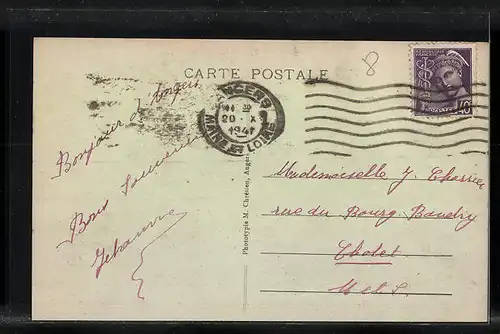 CARTE POSTALE
8
ANGERS
20 - X
1941
MAINE ET LOIRE
40
Bonjour d'Angers
Bons Souvenirs
Jehanne
Phototypie M. Chrétien, Angers
Mademoiselle J. Charrier
rue du Bourg Baudry
Cholet
M et L.